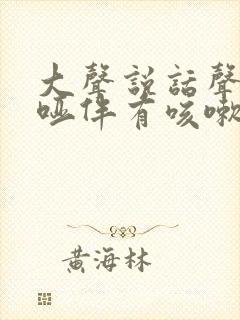 大聲説話聲
啞伴有咳嗽
黄海林